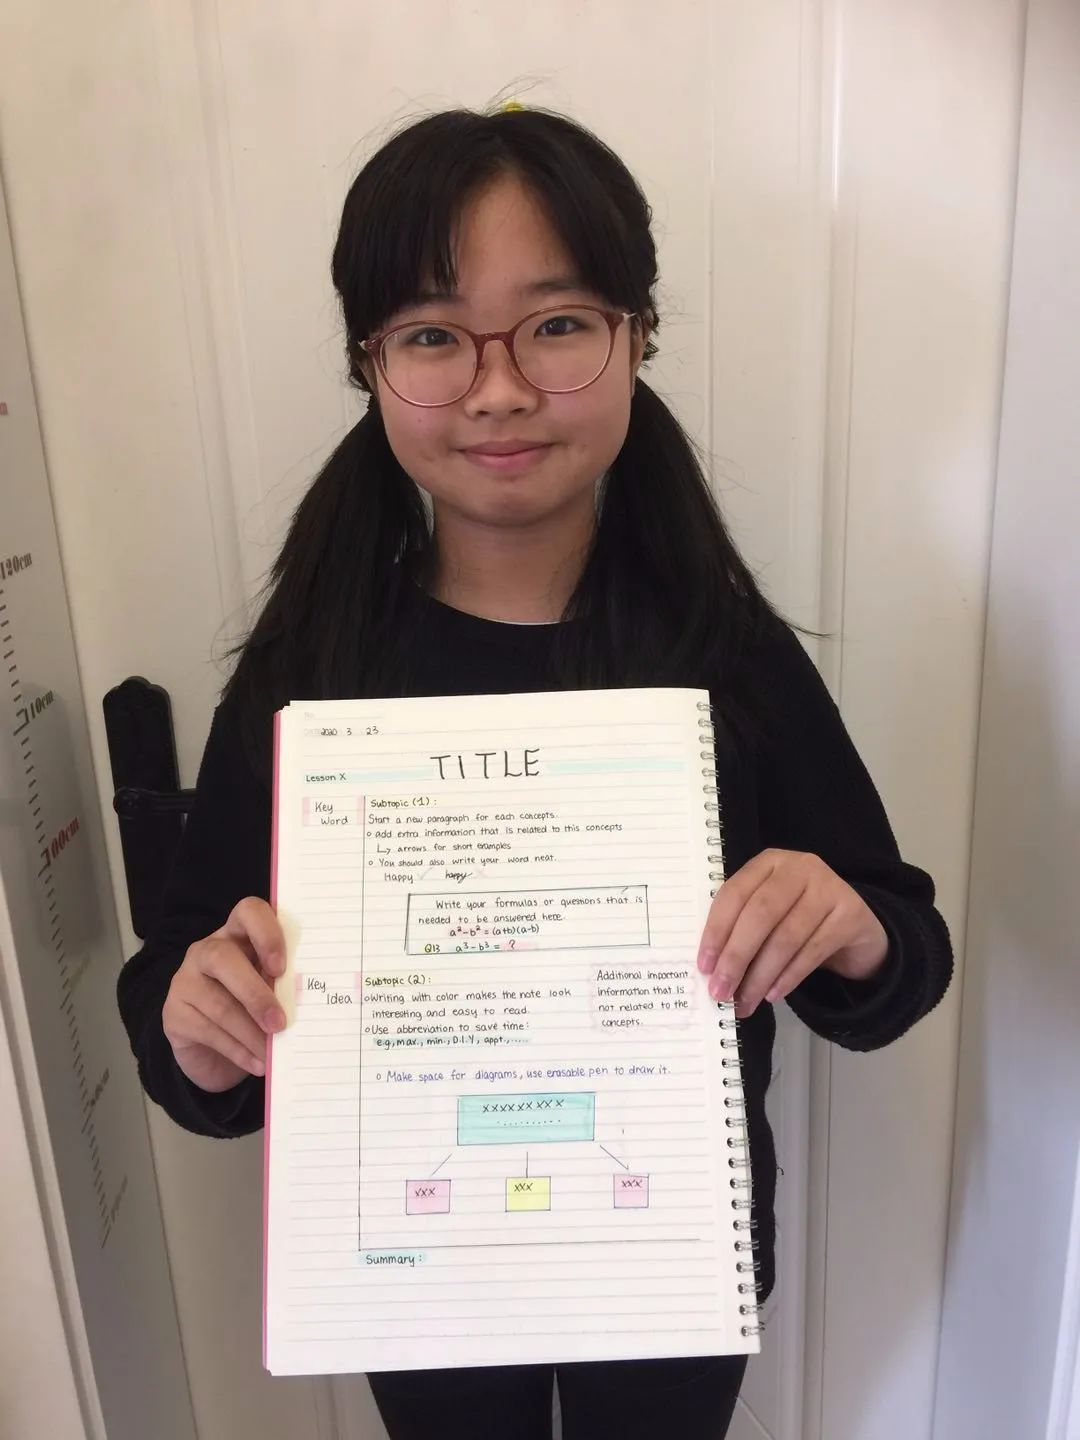 2020 3 23
TITLE
Lesson X
Key
Word
Subtopic (1):
Start a new paragraph for each concepts.
o add extra information that is related to this concepts
↳ arrows for short examples
o You should also write your word neat.
Happy ✓ happy ✗
Write your formulas or questions that is
needed to be answered here.
a²-b² = (a+b)(a-b)
Q13 a³-b³ = ?
Key
Idea
Subtopic (2):
o Writing with color makes the note look
interesting and easy to read.
o Use abbreviation to save time:
e.g, max., min., D.I.Y, appt.,.....
Additional important
information that is
not related to the
concepts.
o Make space for diagrams, use erasable pen to draw it.
XXXXXXXXX
..........
XXX
XXX
XXX
Summary:
120cm
110cm
100cm